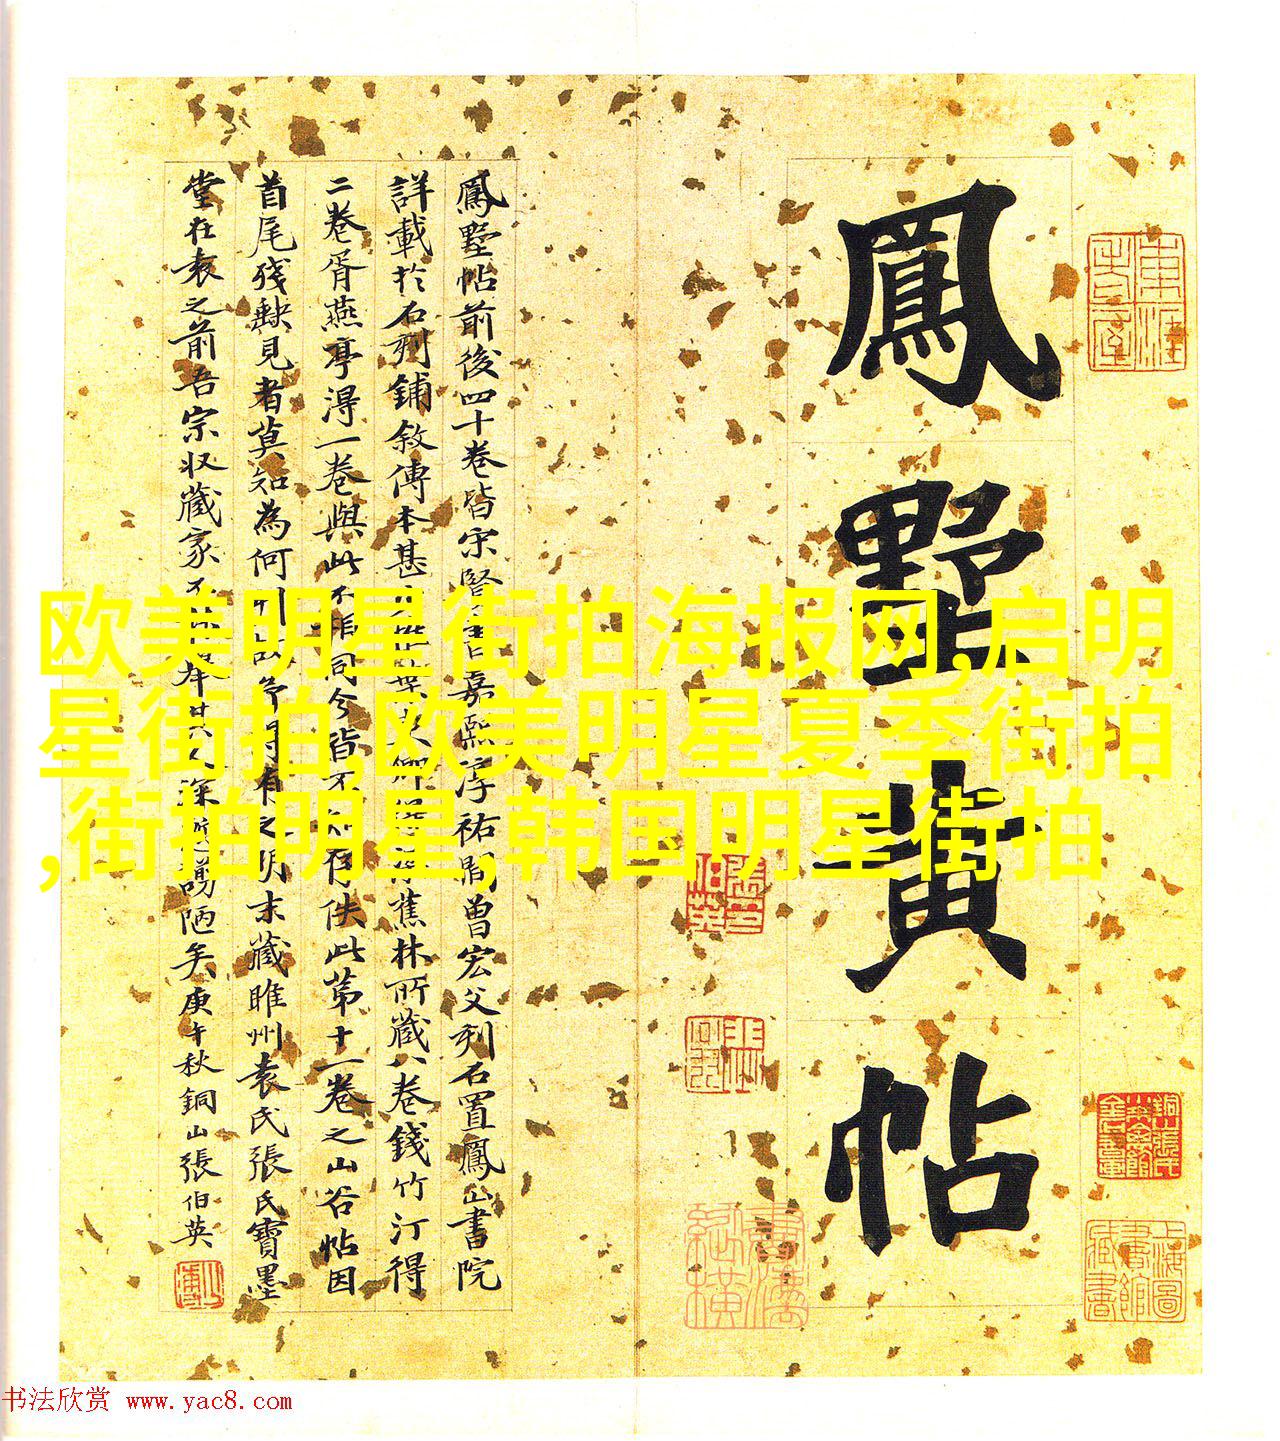 鳳墅黃帖
鳳墅帖前後四十卷皆宋賢書嘉熙淳祐間曾宏父刻石置鳳山書院
詳載於石刻鋪敘傳本甚葉蕉林所藏八卷錢竹汀得
二卷胥燕亭得一卷與此不相同今皆不知存佚此第十一卷之山谷帖因
首尾殘缺見者莫知為何刻有之明末藏睢州袁氏張氏寶墨
堂在袁之前吾宗收藏家不深陋矣庚午秋銅山張伯英
欧美明星街拍海报网,启明
星街拍,欧美明星夏季街拍
,街拍明星,韩国明星街拍
張伯英
上海圖書館藏書
书法欣赏 www.yac8.com